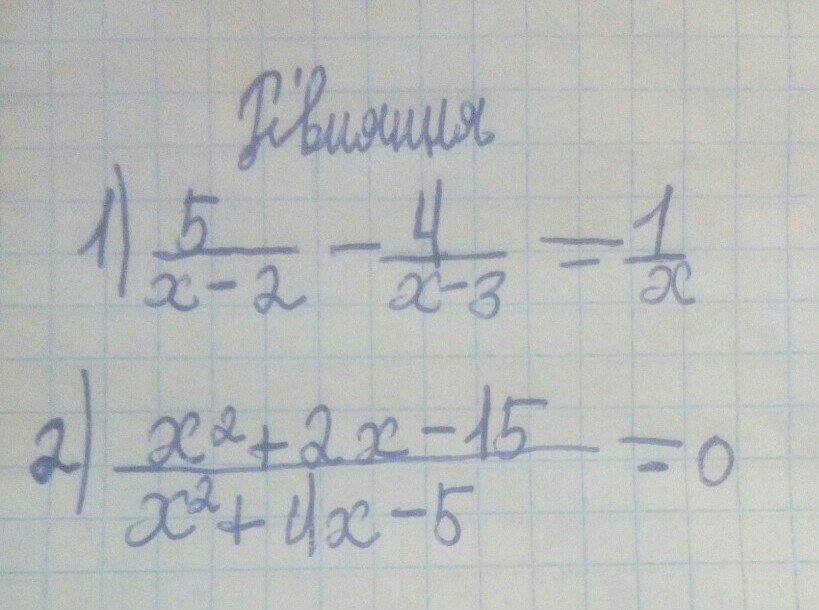 Рівняння
1) 5/(x-2) - 4/(x-3) = 1/x
2) (x²+2x-15)/(x²+4x-5) = 0